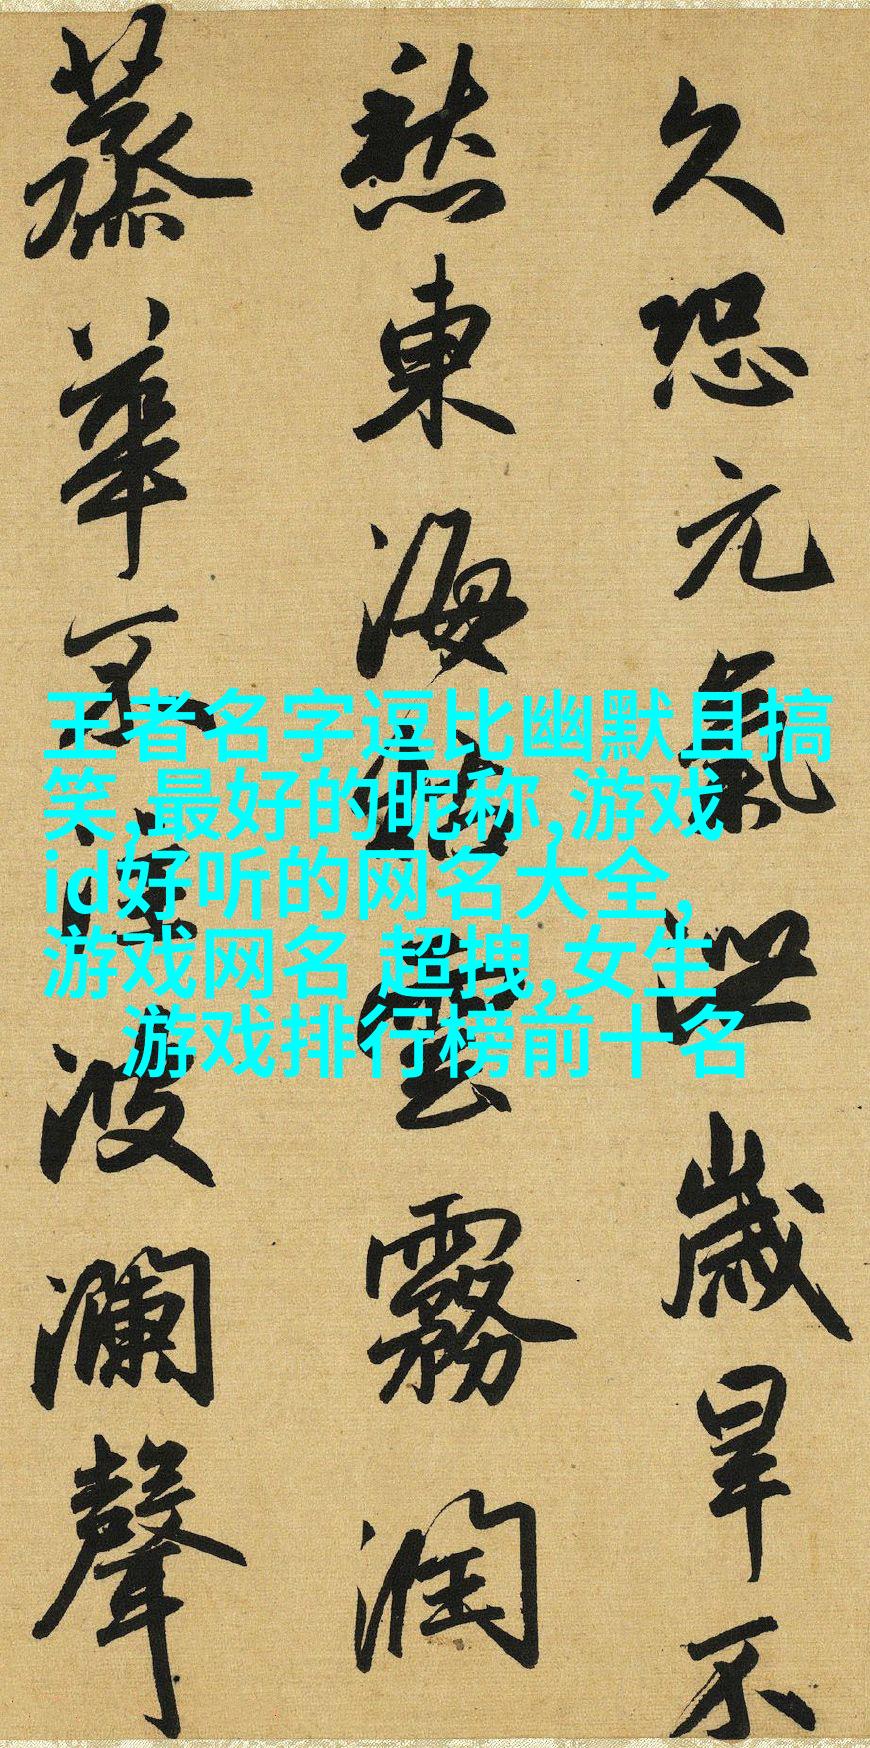 久恐元氣泄歲旱不
愁東海雲霧潤
蒸華波瀾聲
王者名字逗比幽默且搞
笑,最好的昵称,游戏
id好听的网名大全,
游戏网名 超拽,女生
游戏排行榜前十名